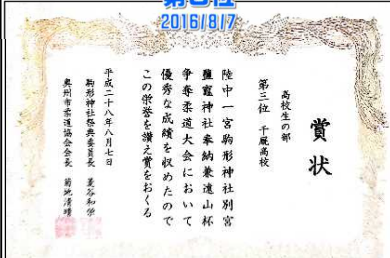 2016/8/7
賞状
高校生の部
第三位 千厩高校
陸中一宮駒形神社別宮
鹽竈神社奉納兼遠山杯
争奪柔道大会において
優秀な成績を収めたので
この栄誉を讃え賞をおくる
平成二十八年八月七日
駒形神社祭典委員長
奥州市柔道協会会長 菊地清晴